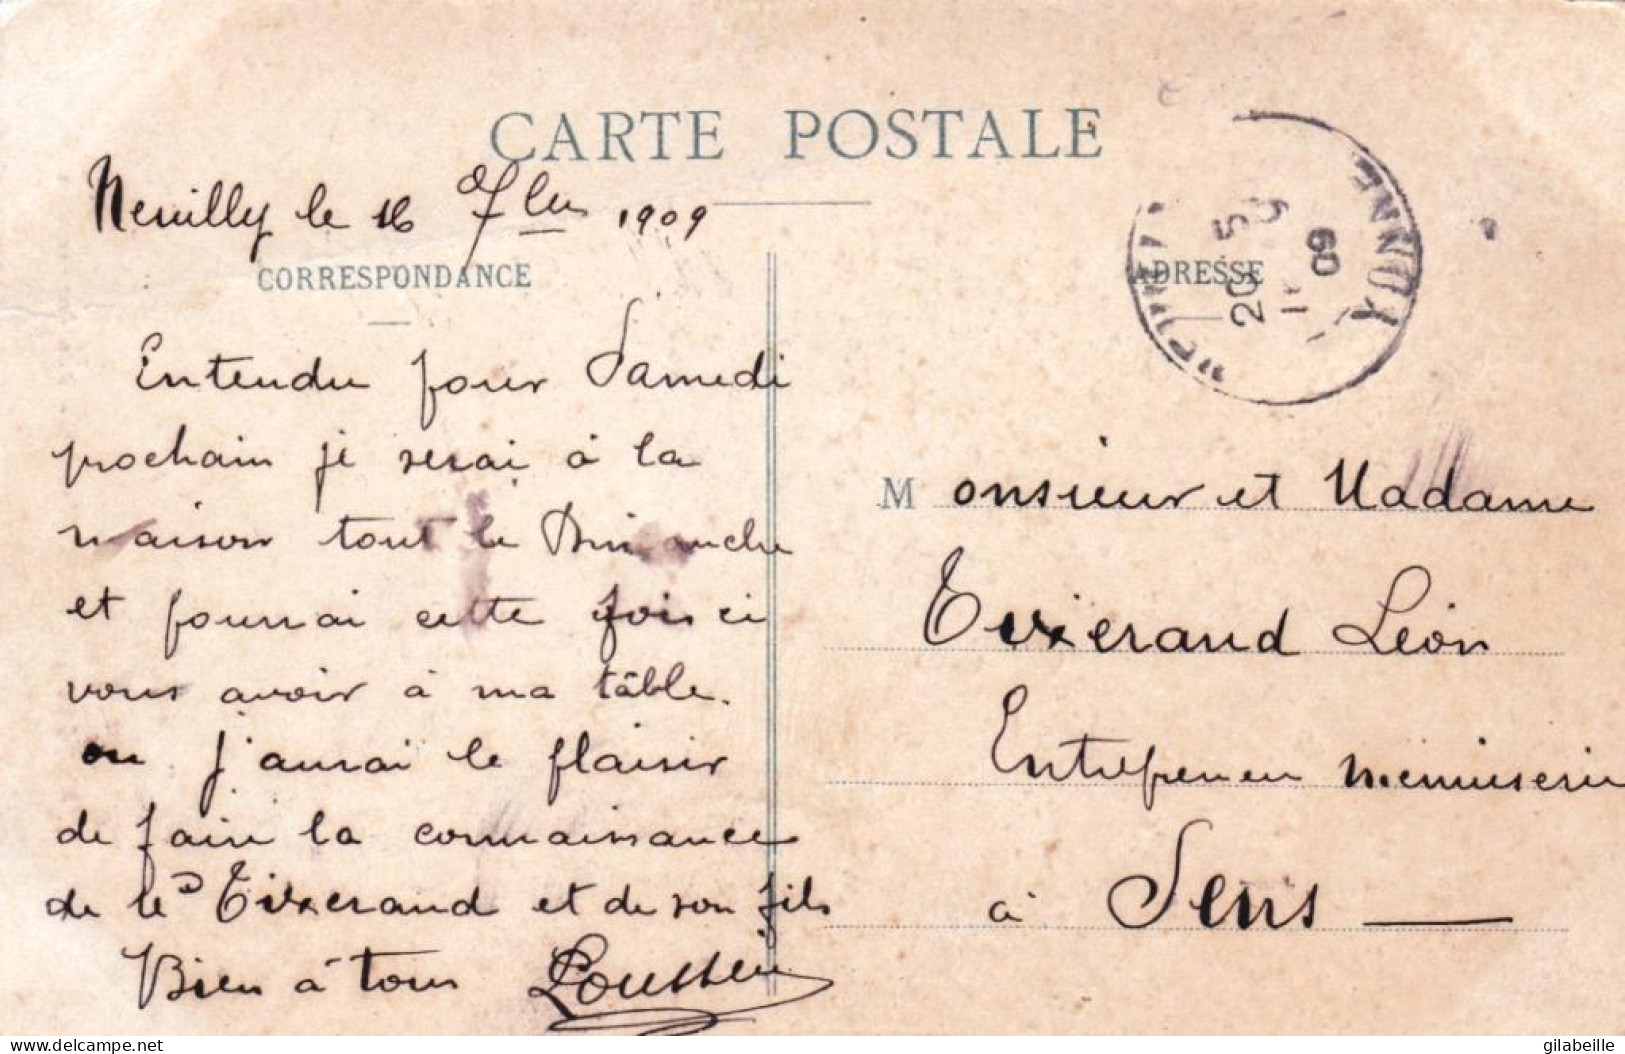 CARTE POSTALE
Neuilly le 16 7bre 1909
CORRESPONDANCE
Entendu pour Samedi
prochain je serai à la
maison tout le Dimanche
et pourrai cette fois ci
vous avoir à ma tâble.
ou j'aurai le plaisir
de faire la connaissance
de Tixerand et de son fils
Bien à tous
ADRESSE
YONNE
20 5
9
09
Monsieur et Madame
Tixerand Léon
Entrepreneur menuiserie
à Sens
delcampe.net
gilabeille